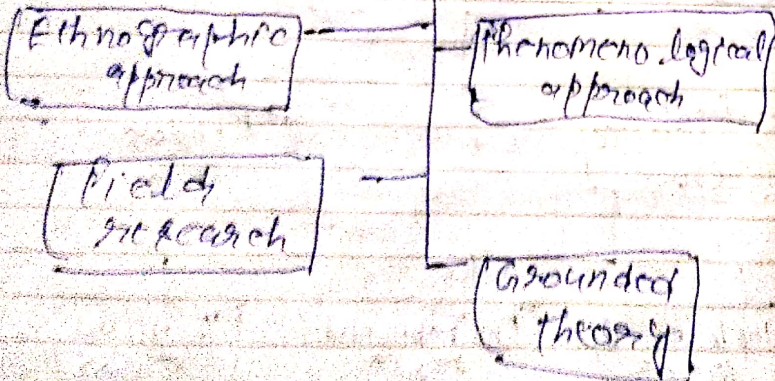 Ethnographic
approach
Phenomeno.logical
approach
Field
research
Grounded
theory